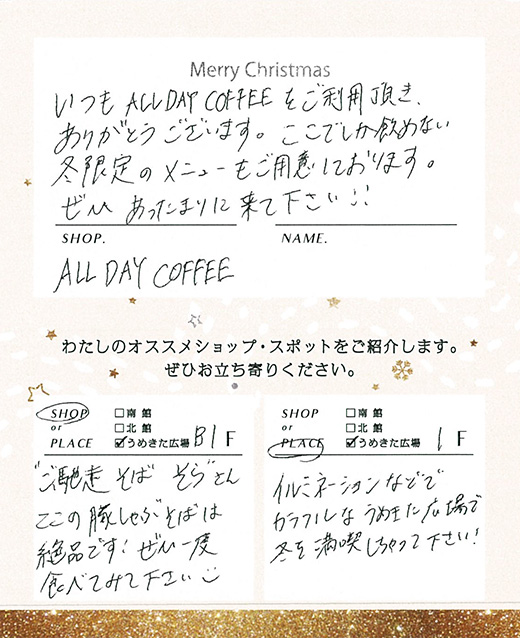 Merry Christmas
いつも ALL DAY COFFEE をご利用頂き、
ありがとうございます。ここでしか飲めない
冬限定のメニューもご用意しております。
ぜひ あったまりに来て下さい
SHOP. NAME.
ALL DAY COFFEE
わたしのオススメショップ・スポットをご紹介します。
ぜひお立ち寄りください。
SHOP □南館
or □北館
PLACE ☑うめきた広場 B1 F
"ご馳走 そば そら"さん
ここの豚しゃぶそばは
絶品です!ぜひ一度
食べてみて下さい
SHOP □南館
or □北館
PLACE ☑うめきた広場 1 F
イルミネーションなどで
カラフルな うめきた広場で
冬を満喫しちゃって下さい!